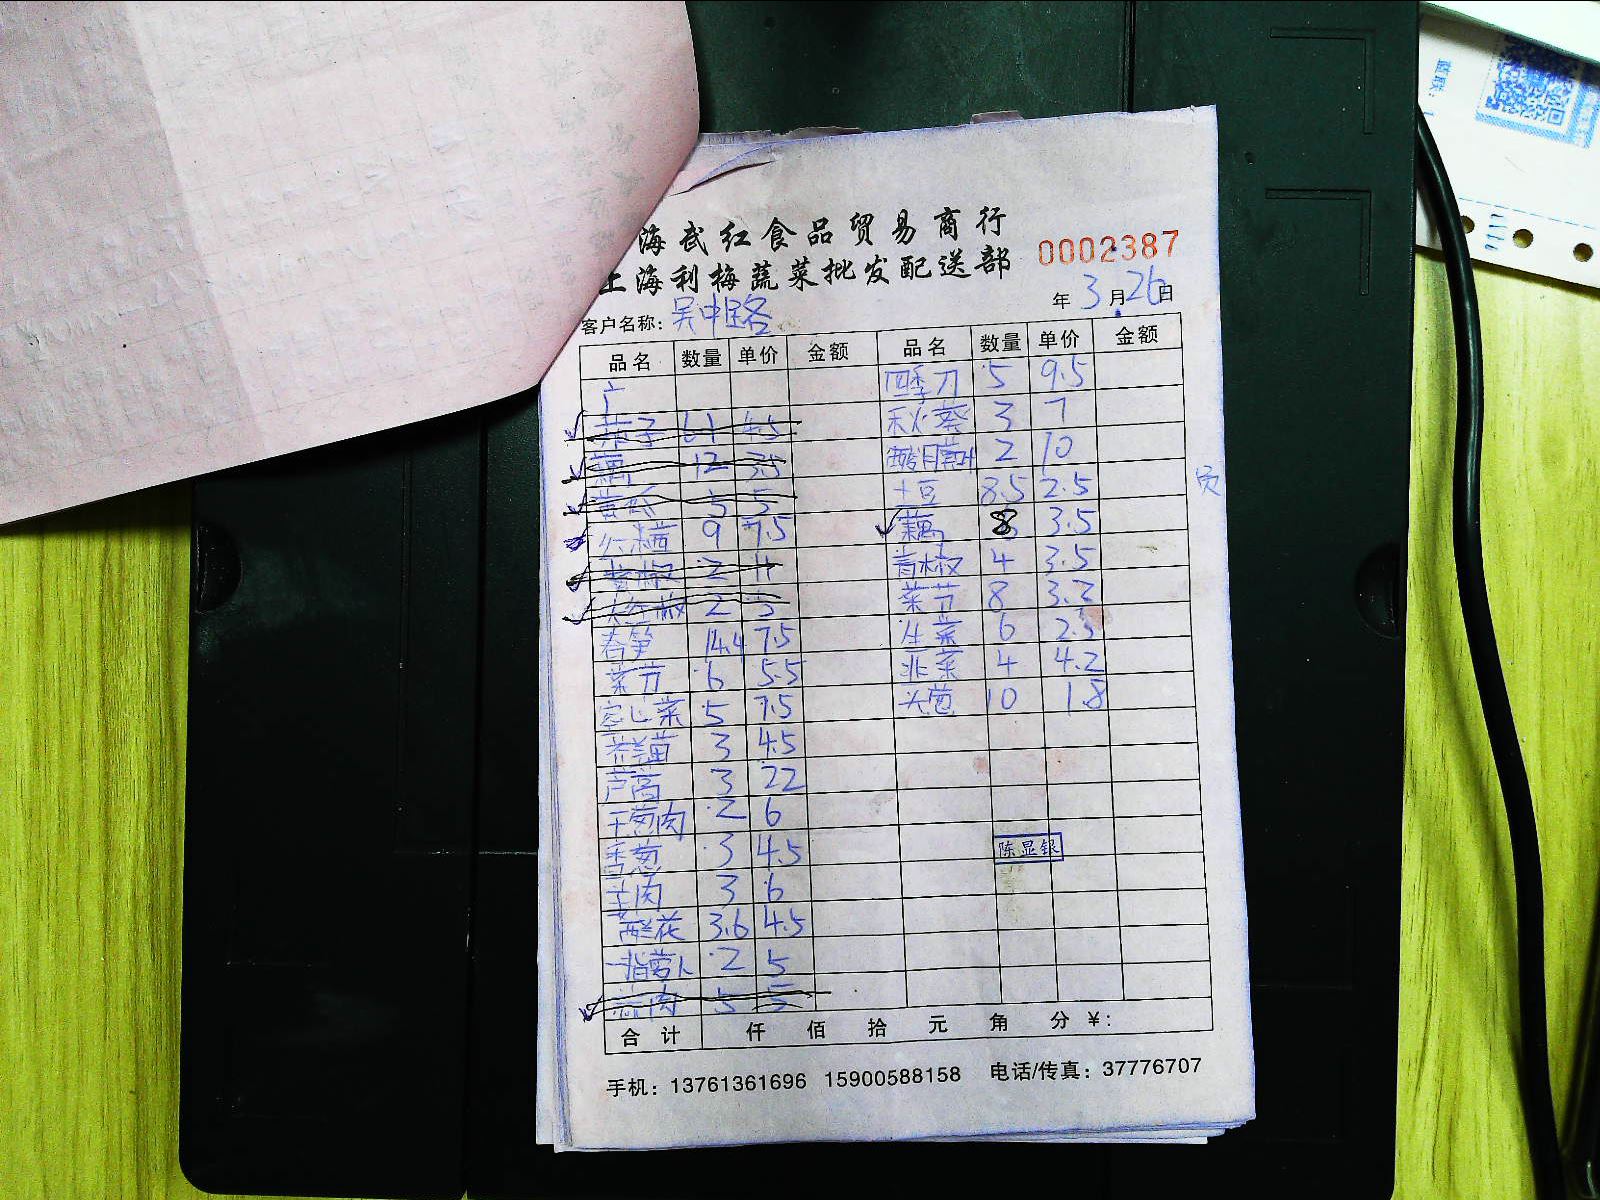 海武红食品贸易商行
上海利梅蔬菜批发配送部
0002387
年 3 月 26 日
客户名称： 吴中路
品名 数量 单价 金额 品名 数量 单价 金额
四季刀 5 9.5
茄子 61 4.5 秋葵 3 7
藕 12 3.5 2 10
黄瓜 5 5 土豆 8.5 2.5
9 7.5 藕 8 3.5
青椒 2 11 青椒 4 3.5
大红椒 2 5 菜节 8 3.2
春笋 14.4 7.5 生菜 6 2.5
菜节 6 5.5 韭菜 4 4.2
空心菜 5 7.5 大葱 10 1.8
3 4.5
芦高 3 22
干葱肉 2 6
香葱 3 4.5 陈显银
羊肉 3 6
西兰花 3.6 4.5
指萝卜 2 5
蒜肉 5 5
合计 仟 佰 拾 元 角 分 ¥：
手机：13761361696 15900588158 电话/传真：37776707